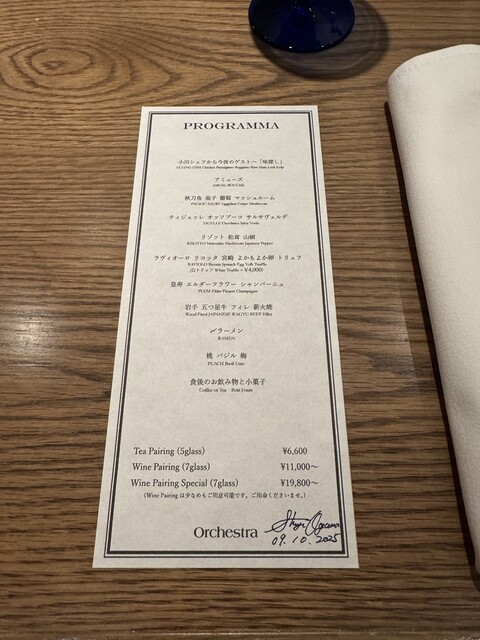 PROGRAMMA
小川シェフから今夜のゲストへ「味探し」
アミューズ
AMUSE BOUCHE
秋刀魚 茄子 葡萄 マッシュルーム
PACIFIC SAURY Eggplant Grape Mushroom
ティジェッレ オッソブーコ サルサヴェルデ
TIGELLE Ossobuco Salsa Verde
リゾット 松茸 山椒
RISOTTO Matsutake Mushroom Japanese Pepper
ラヴィオーロ リコッタ 宮崎 よかもよか卵 トリュフ
RAVIOLO Ricotta Spinach Egg Yolk Truffle
(白トリュフ White Truffle + ¥4,000)
皇寿 エルダーフラワー シャンパーニュ
PLUM Elder Flower Champagne
岩手 五つ星牛 フィレ 薪火焼
Wood Fired JAPANESE WAGYU BEEF Fillet
〆ラーメン
RAMEN
桃 バジル 梅
PEACH Basil Ume
食後のお飲み物と小菓子
Coffee or Tea Petit Fours
Tea Pairing (5glass) ¥6,600
Wine Pairing (7glass) ¥11,000～
Wine Pairing Special (7glass) ¥19,800～
(Wine Pairing は少なめもご用意可能です。ご用命くださいませ。)
Orchestra
09.10.2025